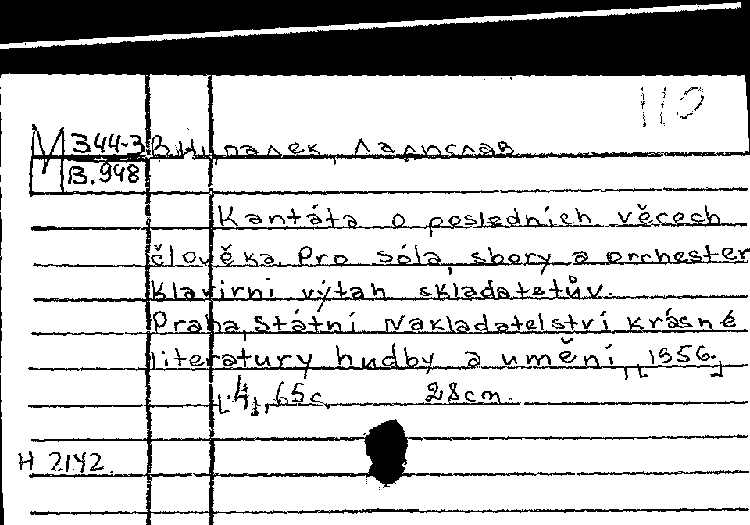 110
М 344-3 Выпалек, Ладислав
В.948
Kantáta o posledních věcech
člověka. Pro sóla, sbory a orchester
klavírní výtah skladatetův.
Praha, Státní Nakladatelství krásné
literatury hudby a umění, [1956.]
[4], 65c. 28cm.
Н 2142.